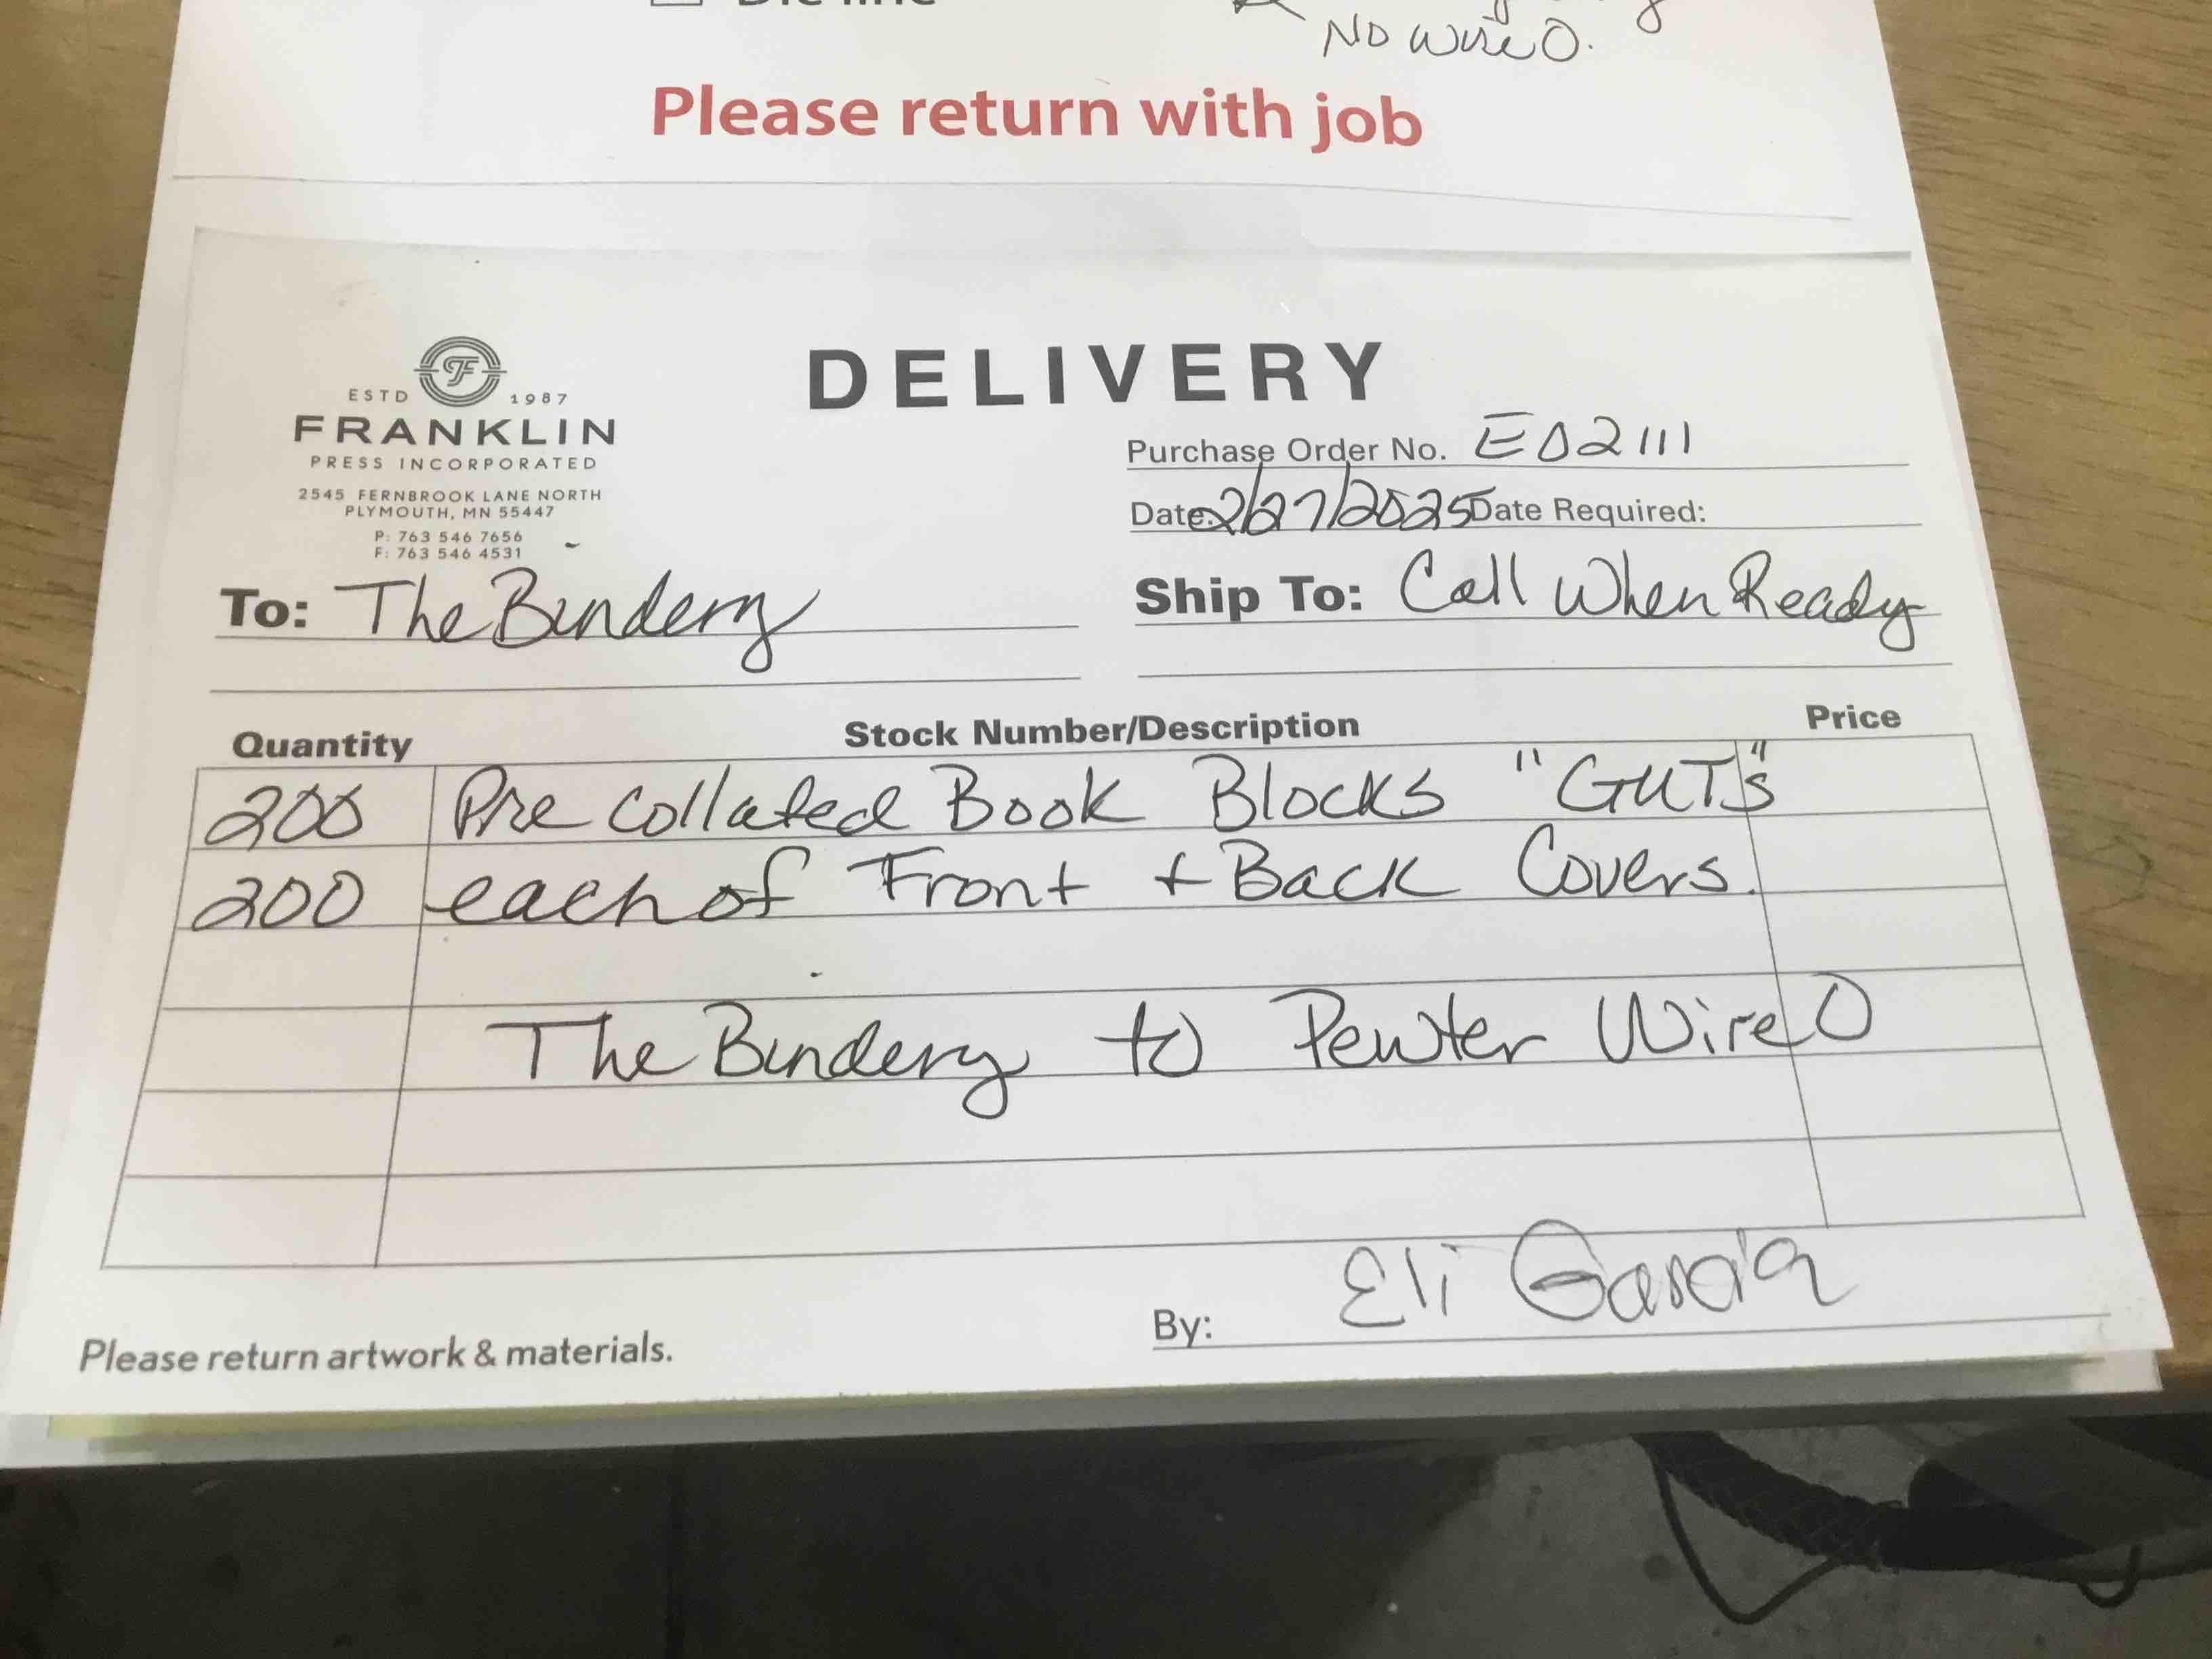 Die line
No Wire O.
Please return with job
DELIVERY
ESTD 1987
FRANKLIN
PRESS INCORPORATED
2545 FERNBROOK LANE NORTH
PLYMOUTH, MN 55447
P: 763 546 7656
F: 763 546 4531
Purchase Order No. E02111
Date: 2/27/2025 Date Required:
To: The Bindery
Ship To: Call When Ready
Quantity Stock Number/Description Price
200 Pre Collated Book Blocks "GUTS"
200 each of Front + Back Covers.
The Bindery to Pewter Wire O
By: Eli Garcia
Please return artwork & materials.